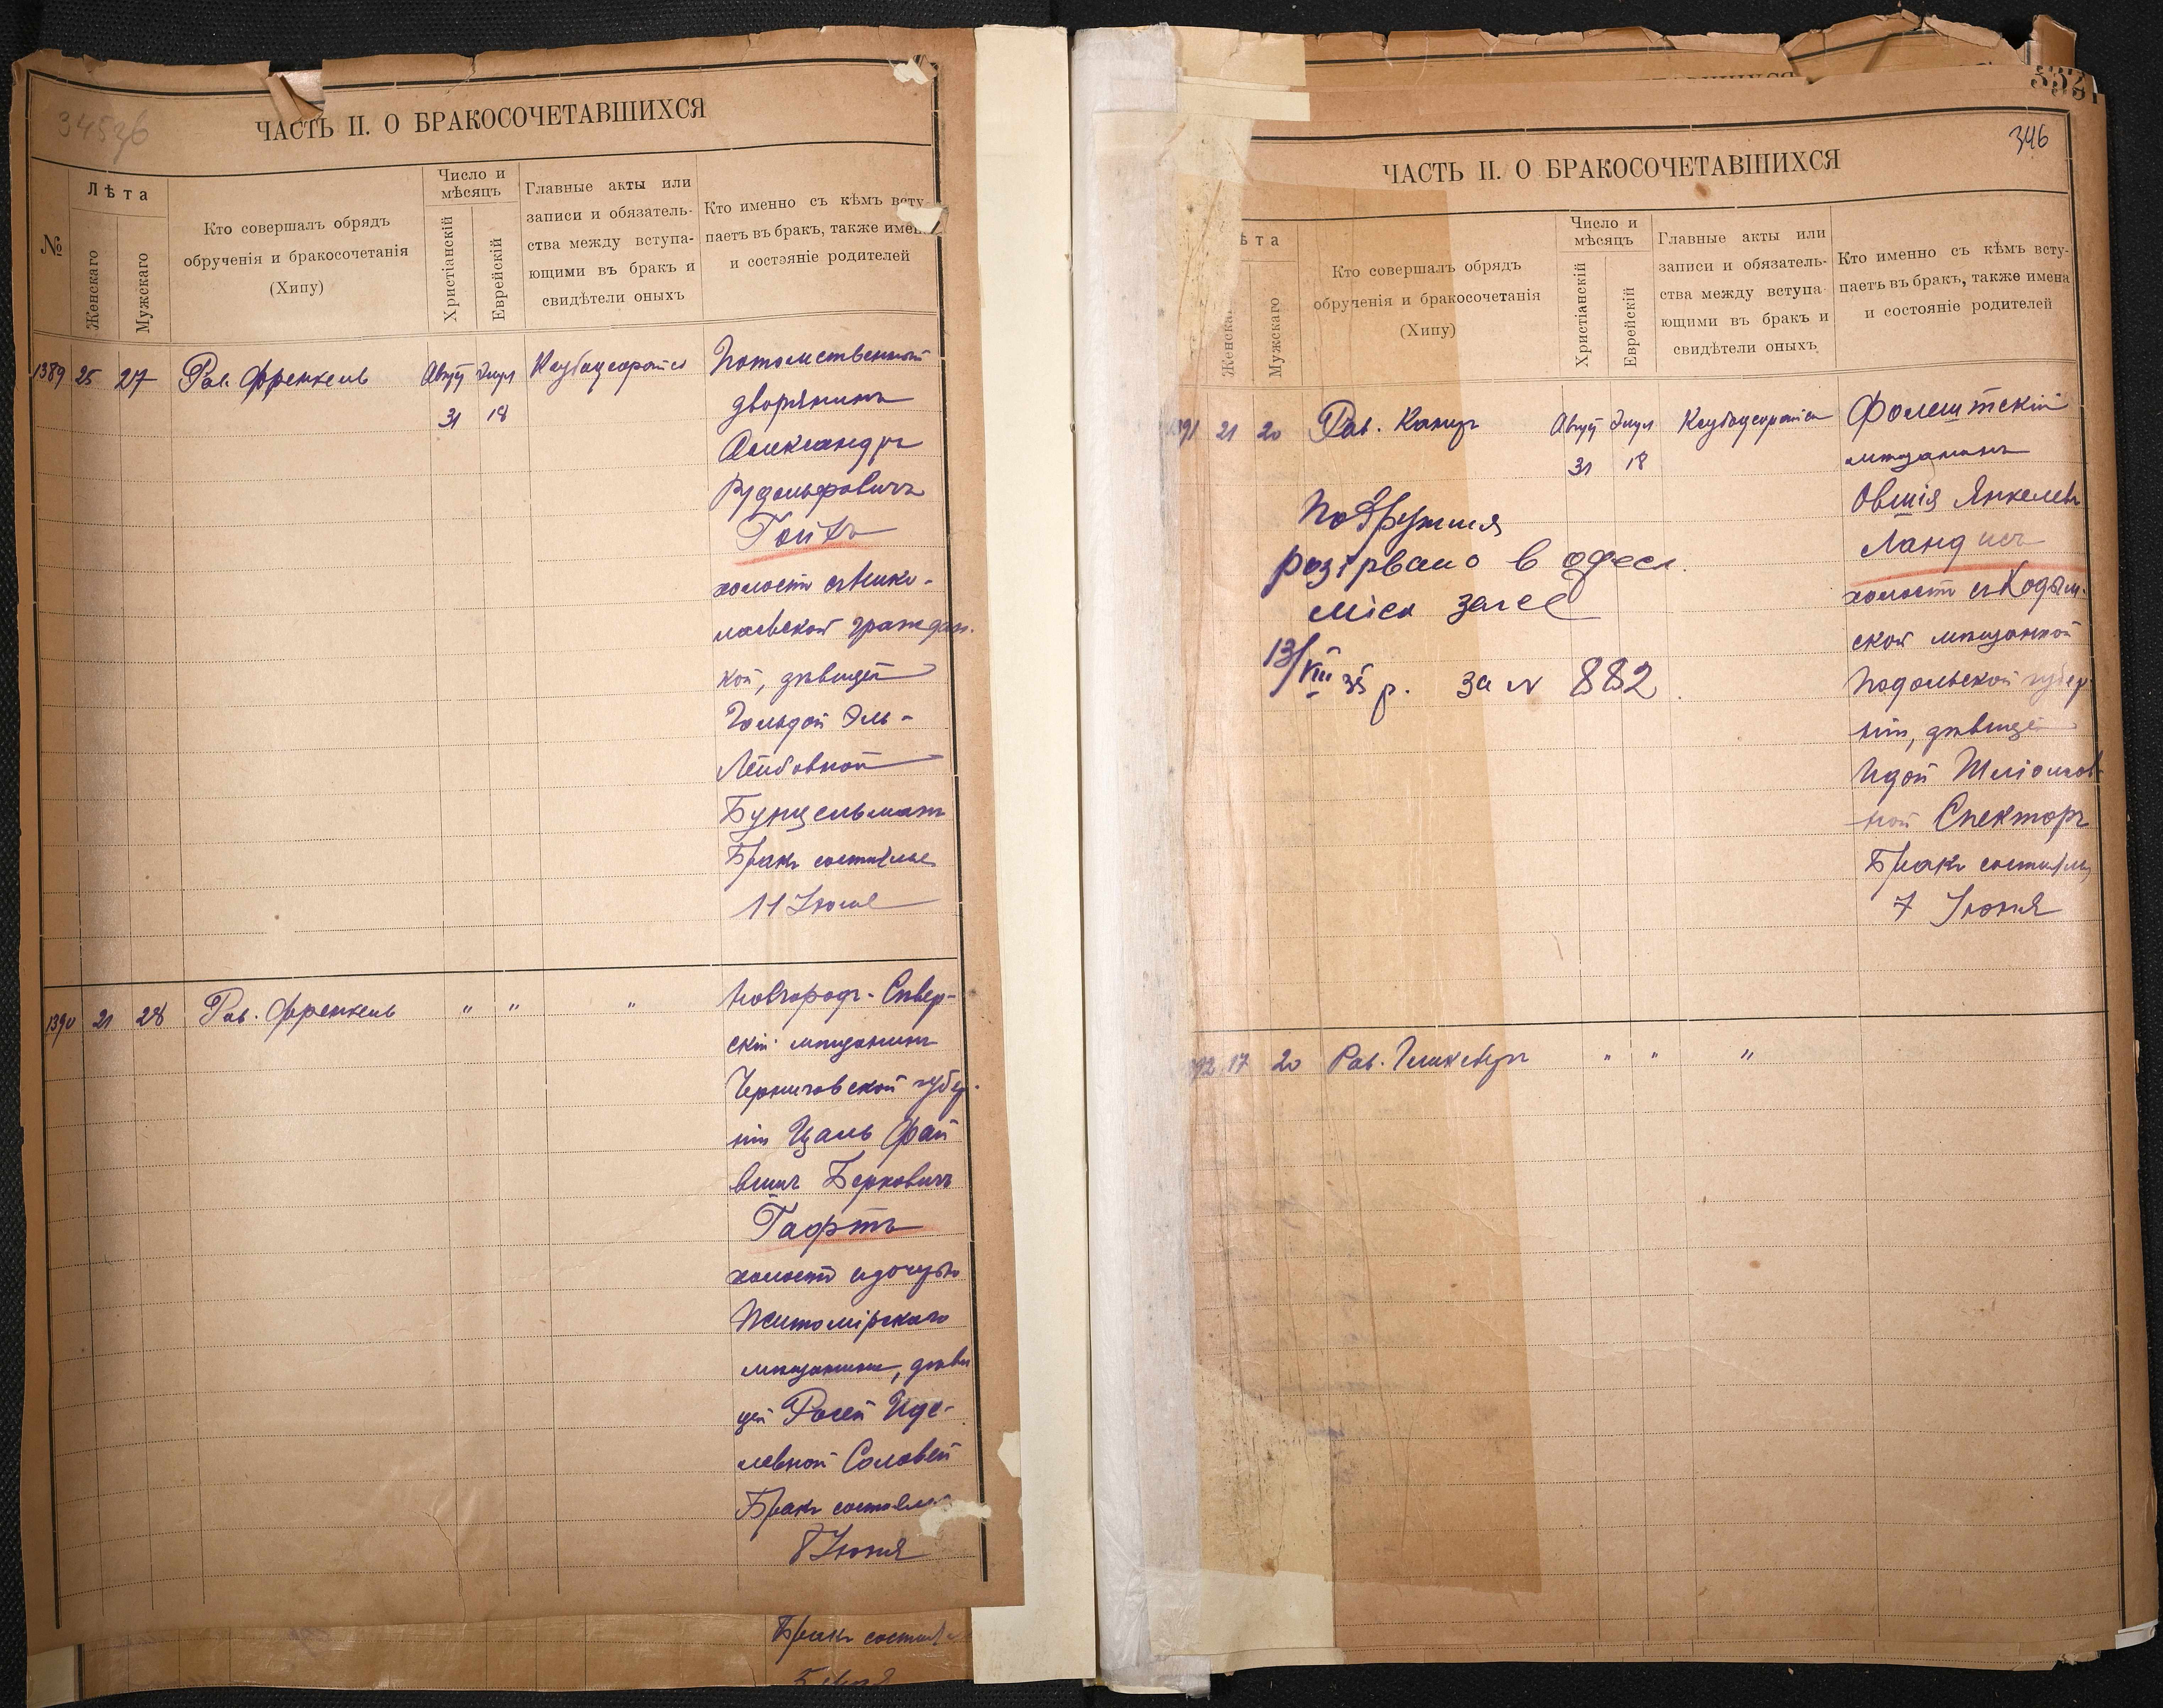 345 зб
ЧАСТЬ II. О БРАКОСОЧЕТАВШИХСЯ
№
Лѣта
Женскаго
Мужскаго
Кто совершалъ обрядъ
обрученія и бракосочетанія
(Хипу)
Число и
мѣсяцъ
Христіанскій
Еврейскій
Главные акты или
записи и обязатель-
ства между вступа-
ющими въ бракъ и
свидѣтели оныхъ
Кто именно съ кѣмъ всту-
паетъ въ бракъ, также имен
и состояніе родителей
1389 25 27 Рав. Френкель Август Элул
31 18
Потомственный
дворянинъ
Александръ
Рудольфовичъ
холостъ съ Нико-
лаевской граждан.
кой, дѣвицей
Гольдой Эль-
Лейбовной
Бунцельманъ
Бракъ состоялся
11 Іюля
1390 21 28 Рав. Френкель " " "
Новгородъ-Сѣвер-
скій мѣщанинъ
Черниговской губер.
ніи Цаль Фай
вишъ Берковичъ
Гафтъ
холостъ съ дочерью
Житомірскаго
мѣщанина, дѣви
цей Розей Иде-
левной Соловей
Бракъ состоялся
8 Іюня
Бракъ состоял
332
346
ЧАСТЬ II. О БРАКОСОЧЕТАВШИХСЯ
ѣта
Женска
Мужскаго
Кто совершалъ обрядъ
обрученія и бракосочетанія
(Хипу)
Число и
мѣсяцъ
Христіанскій
Еврейскій
Главные акты или
записи и обязатель-
ства между вступа-
ющими въ бракъ и
свидѣтели оныхъ
Кто именно съ кѣмъ всту-
паетъ въ бракъ, также имена
и состояніе родителей
391 21 20 Рав. Канцъ Август Элул
31 18
Фалештскій
мѣщанинъ
Овшія Янкелевъ
Ландисъ
холостъ съ Кодым-
ской мѣщанкой
Подольской губер
ніи, дѣвицей
Идой Шліомов-
ной Спекторъ
Бракъ состоялся
7 Іюня
Подружжя
розірвано в одеськ.
міськ загсе
13/VIII 35 р. за № 882.
392 17 20 Рав. " " "